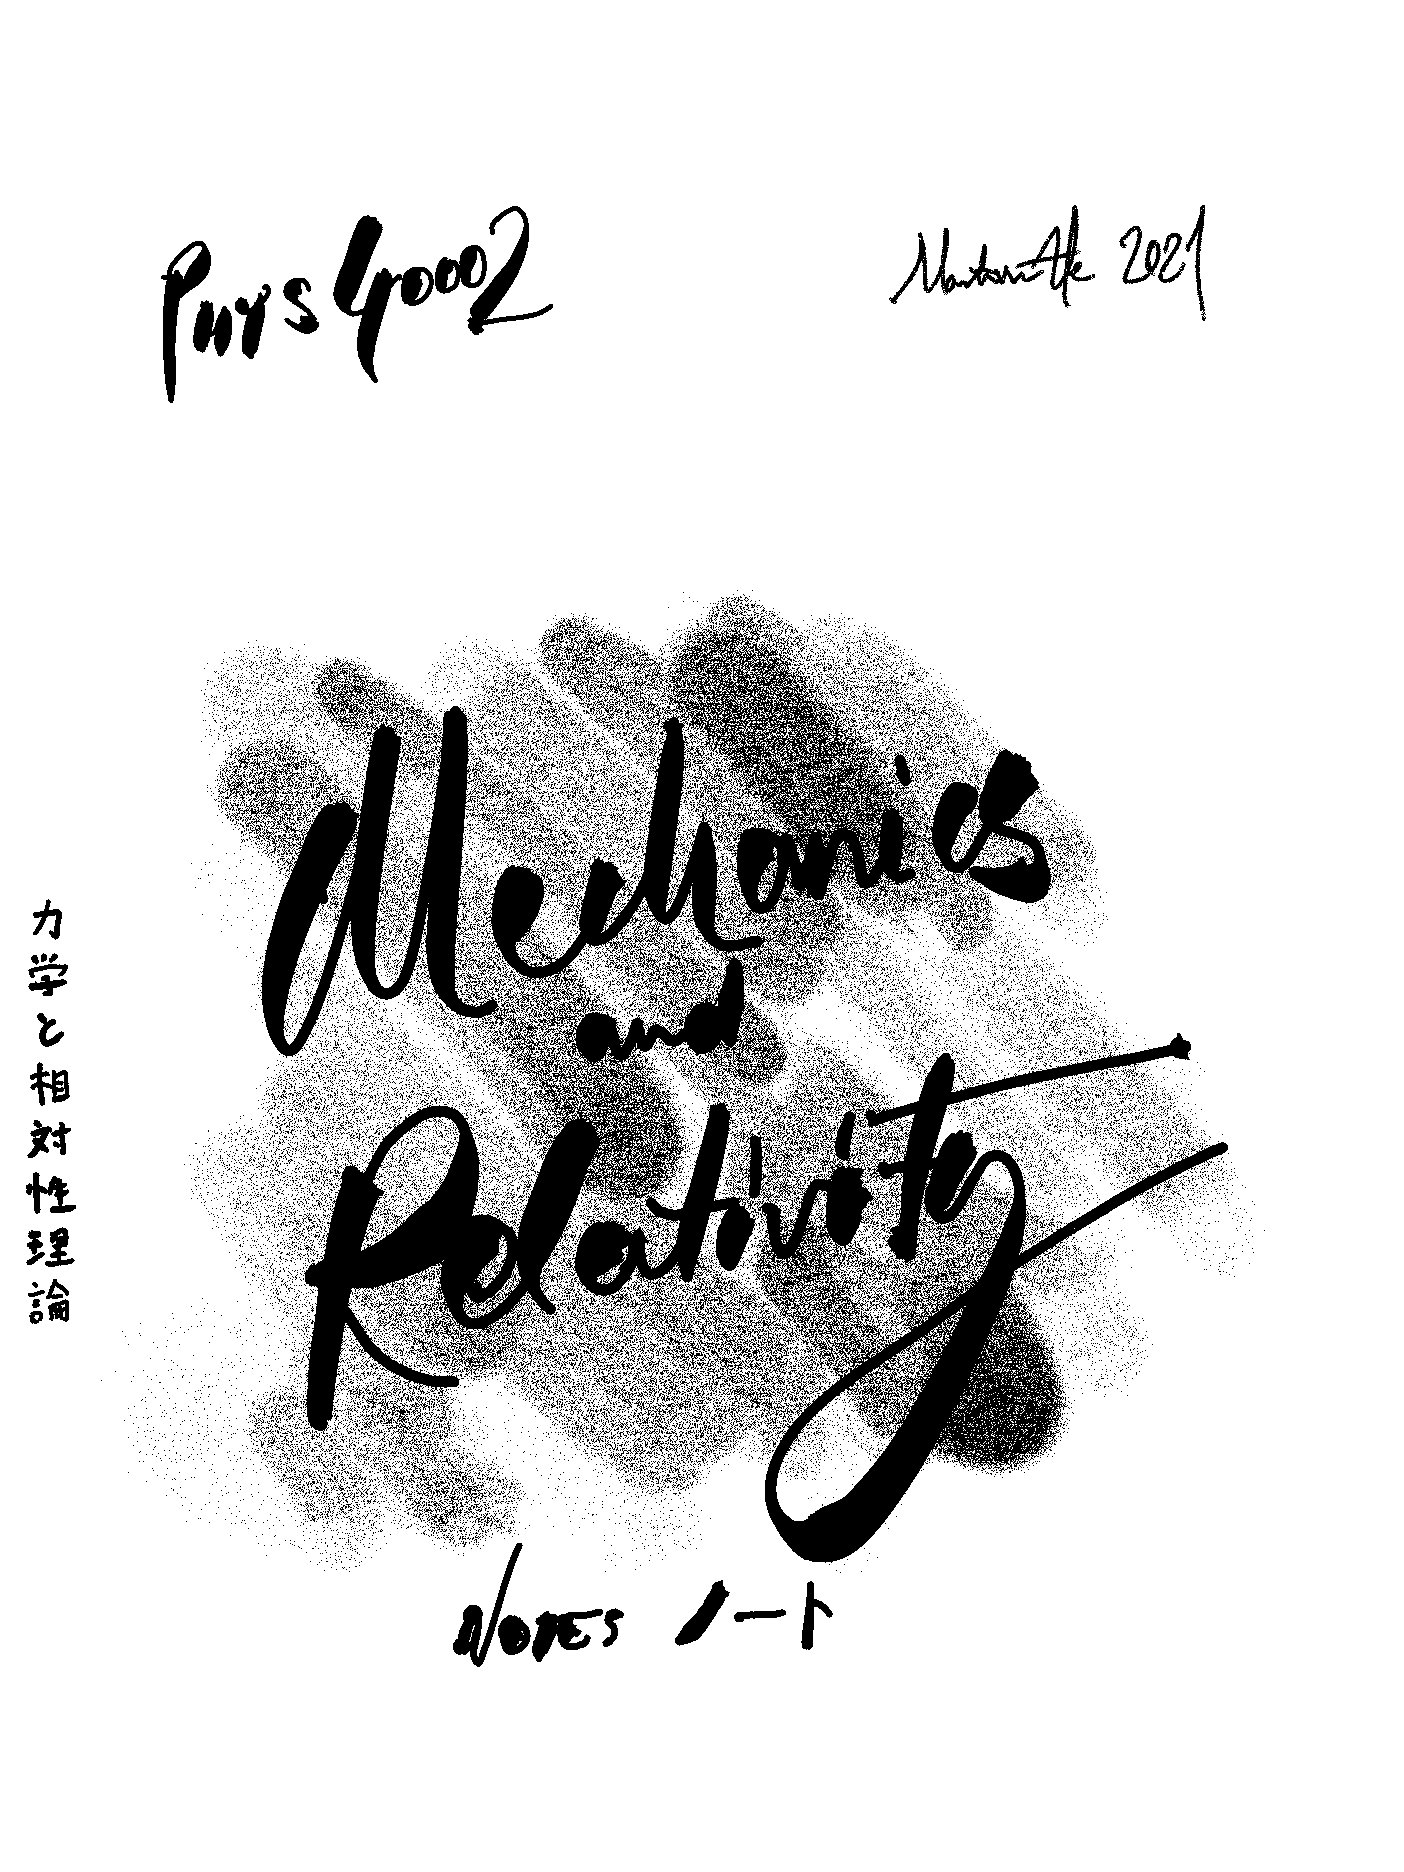 PHYS 40002
2021
Mechanics
and
Relativity
力学と相対性理論
NOTES ノート